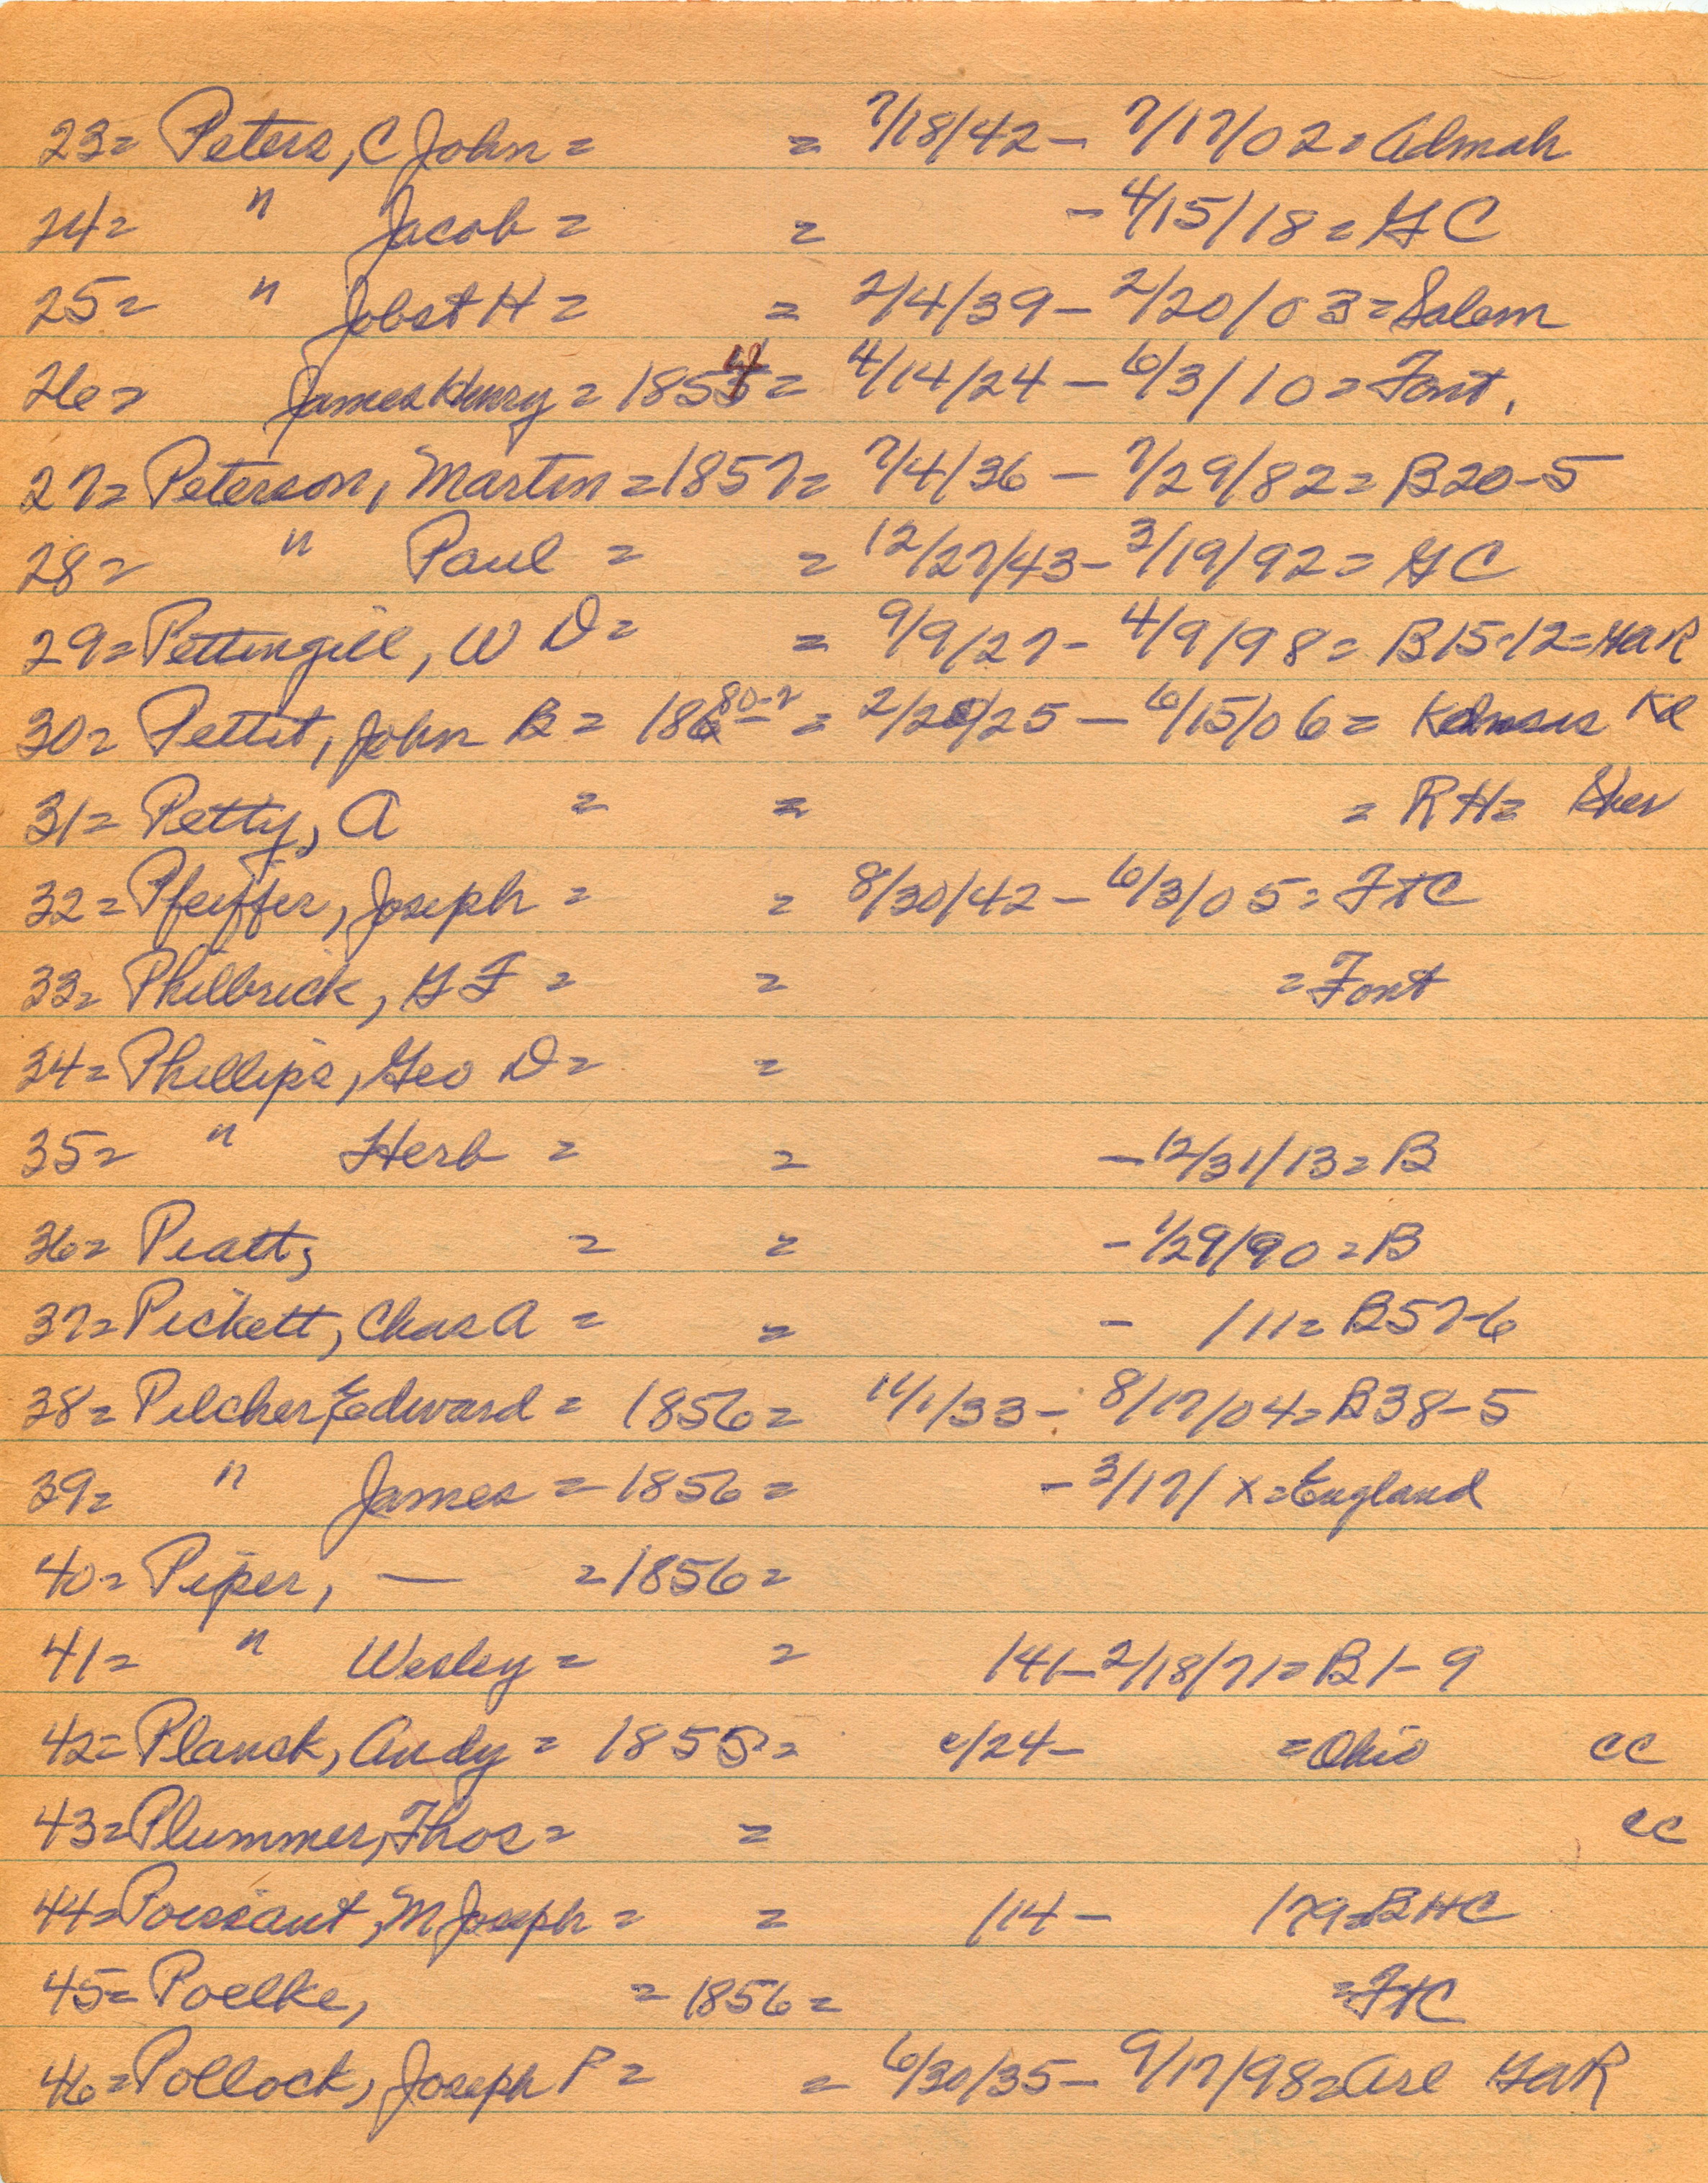 23= Peters, C John = = 7/18/42 - 7/17/02 = Admah
24= " Jacob = = - 4/15/18 = G C
25= " Jobst H = = 2/4/39 - 2/20/03 = Salem
26= James Henry = 1854 = 4/14/24 - 6/3/10 = Font.
27= Peterson, Martin = 1857 = 7/4/36 - 7/29/82 = B20-5
28= " Paul = = 12/27/43 - 3/19/92 = G C
29= Pettingill, W D = = 9/9/27 - 4/9/98 = B15-12 = GaR
30= Pettit, John B = 186 80-2 = 2/20/25 - 6/15/06 = Kansas
31= Petty, A = = = RH =
32= Pfeiffer, Joseph = = 8/30/42 - 6/3/05 = FtC
33= Philbrick, G F = = = Font
34= Phillips, Geo D = =
35= " Herb = = - 12/31/13 = B
36= Piatt, = = - 1/29/90 = B
37= Pickett, Chas A = = - /11 = B57-6
38= Pilcher, Edward = 1856 = 11/1/33 - 8/17/04 = B38-5
39= " James = 1856 = - 3/17/ X = England
40= Piper, — = 1856 =
41= " Wesley = = /41 - 2/18/71 = B1-9
42= Planck, Andy = 1855 = c/24 - = Ohio cc
43= Plummer, Thos = = cc
44= Poissant, M Joseph = = /14 - /79 = BHC
45= Poelke, = 1856 = = FtC
46= Pollock, Joseph P = = 6/30/35 - 9/17/98 = Arl GaR